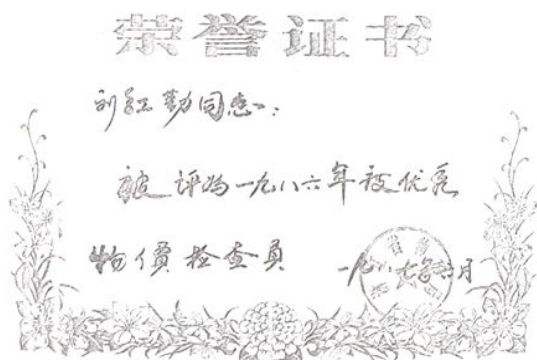 荣誉证书
刘红勤同志：
被评为一九八六年被优秀
物價检查員
一九八七年 月